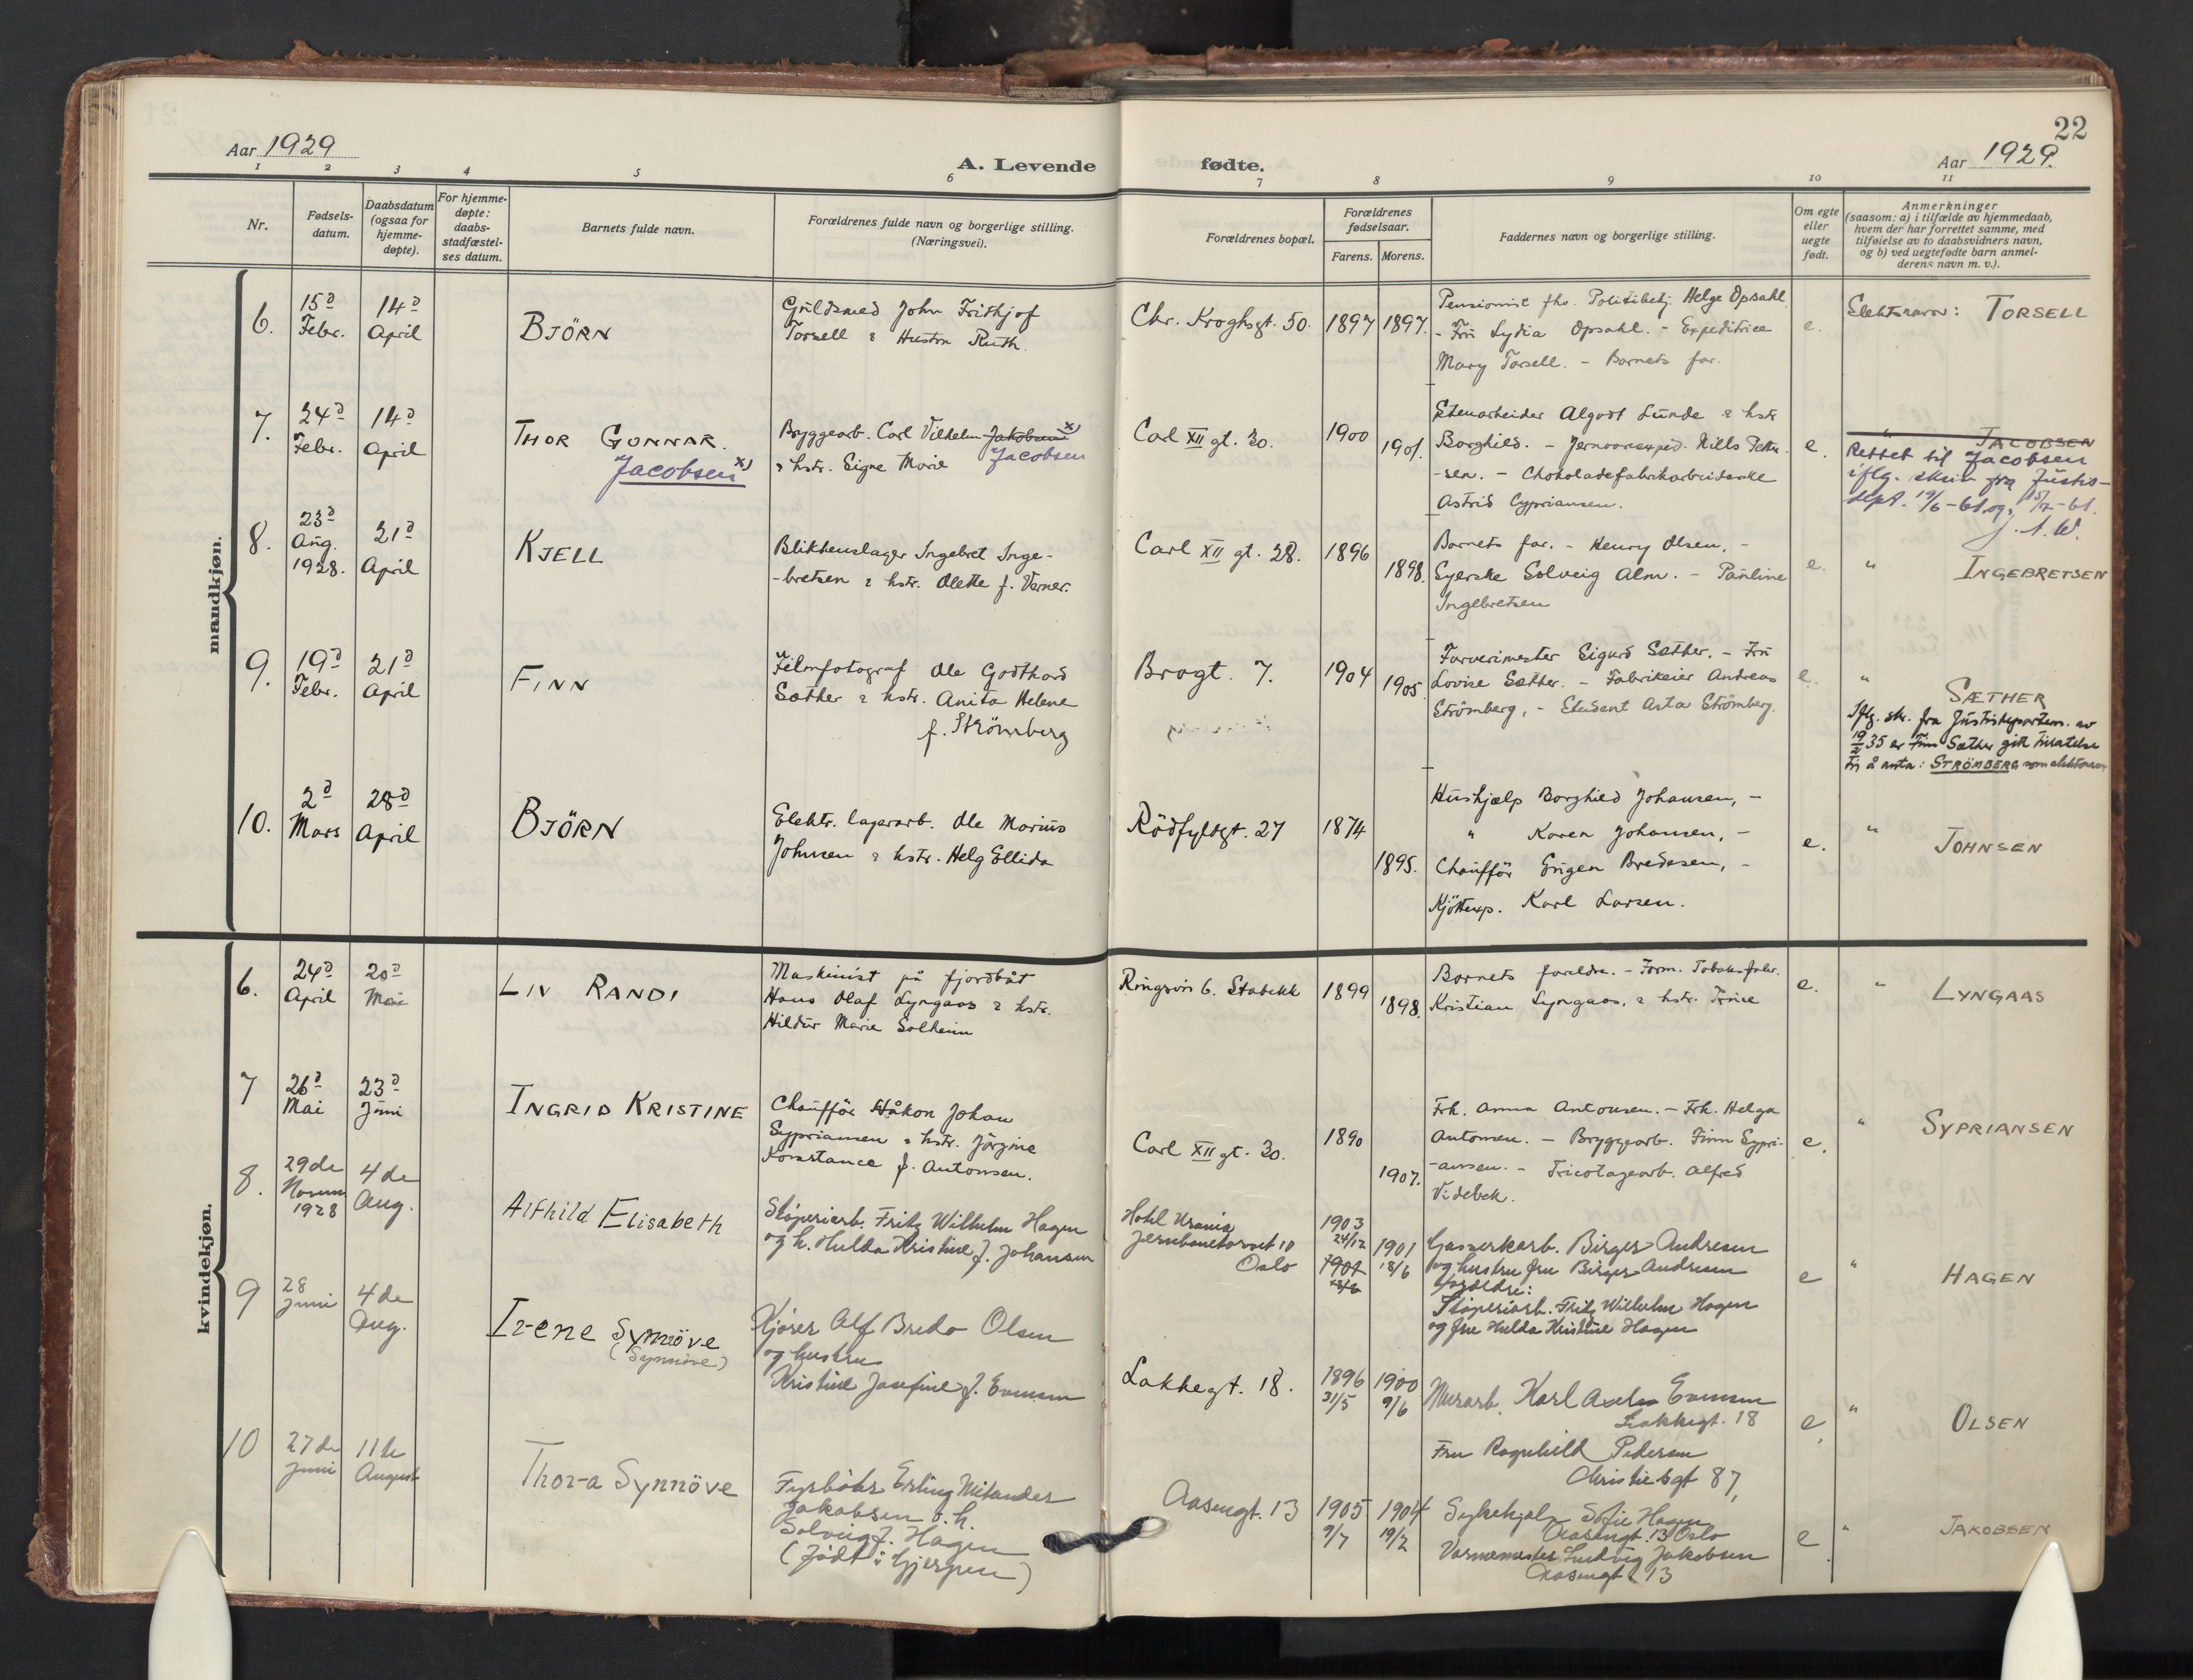 22
Aar 1929
A. Levende fødte.
Aar 1929.
1 2 3 4 5 6 7 8 9 10 11
Nr.
Fødsels-
datum.
Daabsdatum
(ogsaa for
hjemme-
døpte).
For hjemme-
døpte:
daabs-
stadfæstel-
ses datum.
Barnets fulde navn.
Forældrenes fulde navn og borgerlige stilling.
(Næringsvei).
Forældrenes bopæl.
Forældrenes
fødselsaar.
Farens. Morens.
Faddernes navn og borgerlige stilling.
Om egte
eller
uegte
født.
Anmerkninger
(saasom: a) i tilfælde av hjemmedaab,
hvem der har forrettet samme, med
tilføielse av to daabsvidners navn,
og b) ved uegtefødte barn anmel-
derens navn m. v.).
mandkjøn.
6.
15d
Febr.
14d
April
BJÖRN
Guldsmed John Frithjof
Torsell & Hustru Ruth.
Chr. Kroghsgt. 50.
1897
1897.
Pensionist fhv. Politibetj. Helge Opsahl
- Fru Lydia Opsahl. - Expeditrice
Mary Torsell. - Barnets far.
e.
Slektsnavn: TORSELL
7.
24d
Febr.
14d
April
THOR GUNNAR.
Jacobsen x)
Bryggearb. Carl Vilhelm Jakobsen x)
& hstr. Signe Marie Jacobsen
Carl XII gt. 30.
1900
1901.
Stenarbeider Algodt Lunde & hstr
Borghild. - Jernvareexped. Nills Petter-
-sen. - Chokoladefabrikarbeiderske
Astrid Cypriansen.
e.
" JACOBSEN
Rettet til Jacobsen
iflg. skriv fra Justis-
dept. 19/6-61 og 15/7-61.
8.
23d
Aug.
1928.
21d
April
KJELL
Blikkenslager Ingebret Inge-
-bretsen & hstr. Olette f. Verner.
Carl XII gt. 28.
1896
1898.
Barnets far. - Henry Olsen, -
Syerske Solveig Alm. - Pauline
Ingebretsen
e.
" INGEBRETSEN
9.
19d
Febr.
21d
April
FINN
Filmfotograf Ole Godthard
Sæther & hstr. Anita Helene
f. Strömberg
Brogt. 7.
1904
1905.
Farverimester Sigurd Sæther. - Fru
Lovise Sæther. - Fabrikeier Andreas
Strömberg, - Student Asta Strömberg.
e.
" SÆTHER
Iflg. skr. fra Justisdepartem. av
19/2 35 er Finn Sæther gitt tillatelse
til å anta: STRÖMBERG som slektsnavn
10.
2d
Mars
28d
April
BJÖRN
Elektr. lagerarb. Ole Marius
Johnsen & hstr. Helg Ellida
Rödfyldgt. 27
1874
1895.
Hushjælp Borghild Johansen, -
" Karen Johansen, -
Chaufför Eugen Bredesen, -
Kjöttexp. Karl Larsen.
e.
" JOHNSEN
kvindekjøn.
6.
24d
April
20d
Mai
LIV RANDI
Maskinist på fjordbåt
Hans Olaf Lyngaas & hstr.
Hildur Marie Solheim
Ringsvn 6. Stabekk
1899
1898.
Barnets foreldre. - Form. Tobaksfabr.
Kristian Lyngaas, & hstr. Trine
e.
" LYNGAAS
7
26d
Mai
23d
Juni
INGRID KRISTINE
Chaufför Håkon Johan
Sypriansen & hstr. Jörgine
Konstance f. Antonsen.
Carl XII gt. 30.
1890
1907.
Frk. Anna Antonsen. - Frk. Helga
Antonsen. - Bryggearb. Finn Sypri-
-ansen. - Tricotagearb. Alfred
Videbek.
e.
" SYPRIANSEN
8.
29de
Novem
1928
4de
Aug.
Alfhild Elisabeth
Støperiarb. Fritz Wilhelm Hagen
og h. Hulda Kristine f. Johansen
Hotel Urania
Jernbanetorvet 10
Oslo
1903
24/12
1901
18/6
1901
18/6
Gassverkarb. Birger Andresen
og hustru fru Birger Andresen
Forældre:
Støperiarb. Fritz Wilhelm Hagen
og fru Hulda Kristine Hagen
e
" HAGEN
9
28
juni
4de
Aug.
Irene Synnöve
(Synnöve)
Kjører Alf Bredo Olsen
og hustru
Kristine Josefine f. Evensen
Lakkegt. 18.
1896
31/5
1900
9/6
Murarb. Karl Axel Evensen
Lakkegt. 18
Fru Ragnhild Pedersen
Christiesgt 87,
e
" OLSEN
10
27de
juni
11te
August
Thora Synnöve
Fyrbøter Erling Mikander
Jakobsen o. h.
Solveig f. Hagen
(født i Gjerpen)
Aasengt. 13
1905
9/7
1904
19/2
Sykehjelp Sofie Hagen
Aasengt. 13 Oslo
Varmemester Ludvig Jakobsen
Aasengt. 13
e
" JAKOBSEN